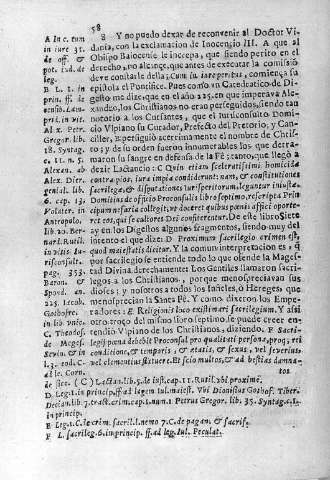 58
A In c. cum
in iure 31.
de off. &
pot. iud. de
leg.
B L. 1. in
prin. ff. de
Alex. ab
Alex. Dier.
genial. lib.
6. cap. 13.
Volater. in
Antropolo.
lib. 20. Ber-
nard. Rutil.
in vitis Iu-
risconsult.
pag. 353.
Baron. &
Spond. ann.
225. Iacob.
Gothofre.
C Theodos.
de Mages.
8 Y no puedo dexar de reconvenir al Doctor Vi-
dania, con la exclamacion de Inocencio III. A que al
Obispo Baiocense le increpa, que siendo perito en el
derecho, no alcance, que antes de executar la comissiõ
deve constarle della; Cum tu iure peritus, comiença su
epistola el Pontifice. Pues como vn Catedratico de Di-
gesto me dize, que en el año 225. en que imperava Ale-
xandro, los Christianos no eran perseguidos, siendo tan
notorio a los Cursantes, que el Iurisconsulto Domi-
cio Vlpiano su Curador, Prefecto del Pretorio, y Can-
ciller, persiguiò acerrimamente el nombre de Chris-
tos? y de su orden fueron innumerables los que derra-
maron su sangre en defensa de la Fè; tanto, que llegò a
dezir Lactancio: C Quin etiam sceleratissimi homicidæ
contra pios, iura impia condiderunt: nam, & constitutiones
sacrilegæ, & disputationes iurisperitorum leguntur iniustæ.
Domitius de officio Proconsulis libro septimo, rescripta Prin-
cipum nefaria collegit; vt doceret quibus pœnis affici oporte-
ret eos, qui se cultores Dei confiterentur. De este libro Siete
ay en los Digestos algunos fragmentos, siendo muy del
intento el que dize: D Proximum sacrilegio crimen est,
quod maiestatis dicitur. Y la comun interpretacion es, que
por sacrilegio se entiende todo lo que ofende la Mages-
tad Divina derechamente: Los Gentiles llamaron sacri-
legos a los Christianos, porque menospreciavan sus
dioses; y nosotros a todos los Infieles, ò Hereges que
menosprecian la Santa Fè. Y como dixeron los Empe-
radores: E Religionis loco existimari sacrilegium. Y assi
otro trozo del mismo libro septimo, se puede creer en-
tendiò Vlpiano de los Christianos, diziendo. F Sacri-
legij pœnã debebit Proconsul pro qualitati personæ, proq; rei
conditione, & temporis, & ætatis, & sexus, vel severius,
vel clementius statuere. Et scio multos, & ad bestias damna-
tos
(C) Lactan. lib. 5. de iust. cap. 11. Rutil. vbi proximè.
D Leg. 1. in princip. ff. ad legem Iul. maiest. Vbi Dionistus Gothof. Tiber.
Decian. lib. 7. tract. crim. cap. 1. num. 1 Petrus Gregor. lib. 35. Syntag. c. 1.
in princip.
F L. sacrileg. 6. in princip. ff. ad leg. Iul. Peculat.